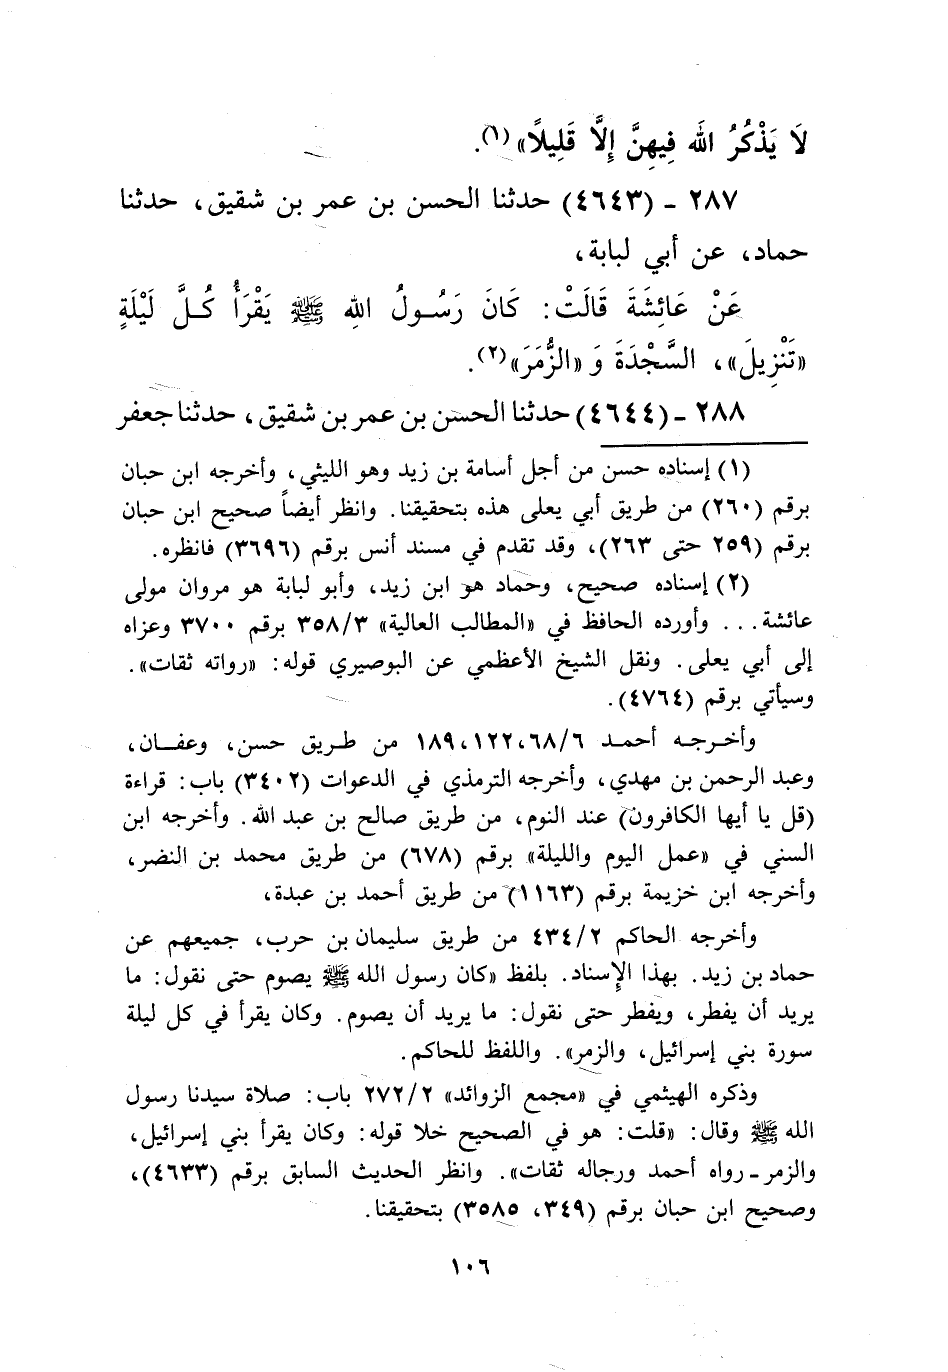 لَا يَذْكُرُ اللهَ فِيهِنَّ إِلَّا قَلِيلًا»(١).
٢٨٧ ـ (٤٦٤٣) حدثنا الحسن بن عمر بن شقيق، حدثنا
حماد، عن أبي لبابة،
عَنْ عَائِشَةَ قَالَتْ: كَانَ رَسُولُ اللهِ ﷺ يَقْرَأُ كُلَّ لَيْلَةٍ
«تَنْزِيلَ»، السَّجْدَةَ وَ «الزُّمَرَ»(٢).
٢٨٨ ـ (٤٦٤٤) حدثنا الحسن بن عمر بن شقيق، حدثنا جعفر
(١) إسناده حسن من أجل أسامة بن زيد وهو الليثي، وأخرجه ابن حبان
برقم (٢٦٠) من طريق أبي يعلى هذه بتحقيقنا. وانظر أيضاً صحيح ابن حبان
برقم (٢٥٩ حتى ٢٦٣)، وقد تقدم في مسند أنس برقم (٣٦٩٦) فانظره.
(٢) إسناده صحيح، وحماد هو ابن زيد، وأبو لبابة هو مروان مولى
عائشة... وأورده الحافظ في «المطالب العالية» ٣٥٨/٣ برقم ٣٧٠٠ وعزاه
إلى أبي يعلى. ونقل الشيخ الأعظمي عن البوصيري قوله: «رواته ثقات».
وسيأتي برقم (٤٧٦٤).
وأخرجه أحمد ٦٨/٦، ١٢٢، ١٨٩ من طريق حسن، وعفان،
وعبد الرحمن بن مهدي، وأخرجه الترمذي في الدعوات (٣٤٠٢) باب: قراءة
(قل يا أيها الكافرون) عند النوم، من طريق صالح بن عبد الله. وأخرجه ابن
السني في «عمل اليوم والليلة» برقم (٦٧٨) من طريق محمد بن النضر،
وأخرجه ابن خزيمة برقم (١١٦٣) من طريق أحمد بن عبدة،
وأخرجه الحاكم ٤٣٤/٢ من طريق سليمان بن حرب، جميعهم عن
حماد بن زيد. بهذا الإسناد. بلفظ «كان رسول الله ﷺ يصوم حتى نقول: ما
يريد أن يفطر، ويفطر حتى نقول: ما يريد أن يصوم. وكان يقرأ في كل ليلة
سورة بني إسرائيل، والزمر». واللفظ للحاكم.
وذكره الهيثمي في «مجمع الزوائد» ٢٧٢/٢ باب: صلاة سيدنا رسول
الله ﷺ وقال: «قلت: هو في الصحيح خلا قوله: وكان يقرأ بني إسرائيل،
والزمر ـ رواه أحمد ورجاله ثقات». وانظر الحديث السابق برقم (٤٦٣٣)،
وصحيح ابن حبان برقم (٣٤٩، ٣٥٨٥) بتحقيقنا.
١٠٦